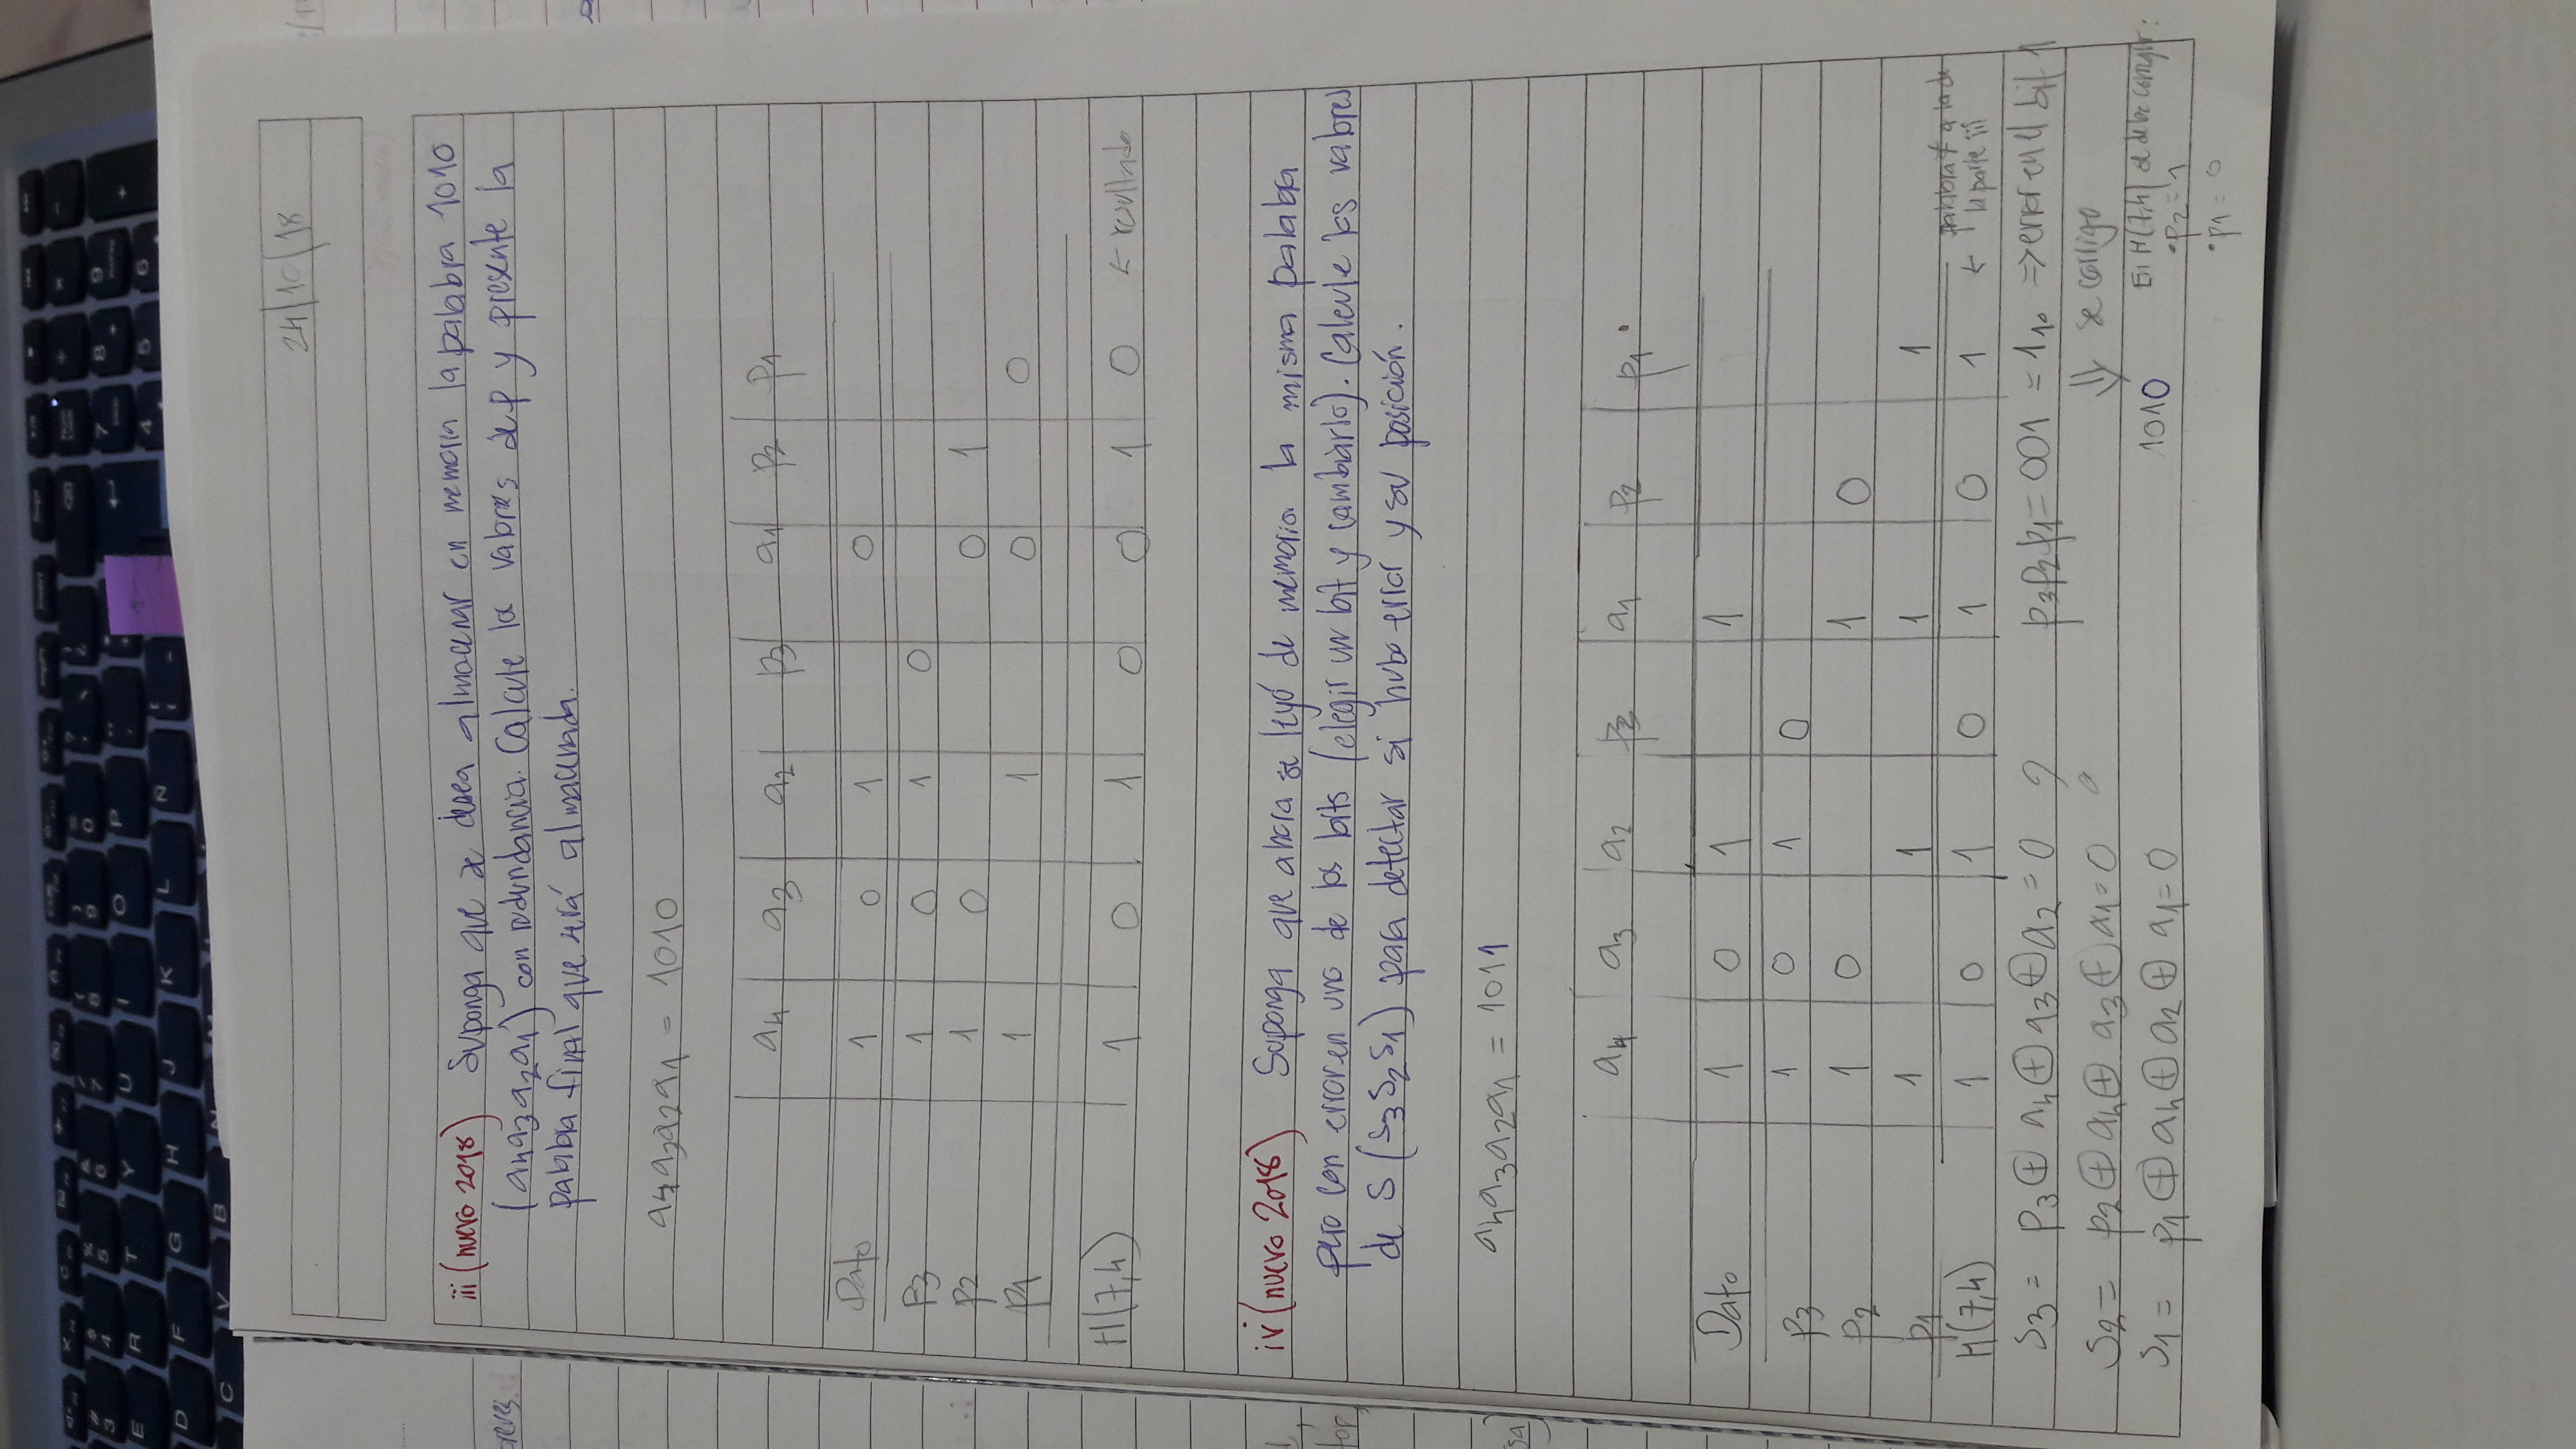 24/10/18
iii (nuevo 2018) Suponga que se desea almacenar en memoria la palabra 1010
(a4a3a2a1) con redundancia. Calcule los valores de p y presente la
palabra final que será almacenada.
a4a3a2a1 = 1010
a4 a3 a2 p3 a1 p2 p1
Dato 1 0 1 0
P3 1 0 1 0
P2 1 0 0 1
P1 1 1 0 0
H(7,4) 1 0 1 0 0 1 0 ← resultado
iv (nuevo 2018) Suponga que ahora se leyó de memoria la misma palabra
pero con error en uno de los bits (elegir un bit y cambiarlo). Calcule los valores
de S (S3S2S1) para detectar si hubo error y su posición.
a4a3a2a1 = 1011
a4 a3 a2 p3 a1 p2 p1
Dato 1 0 1 1
P3 1 0 1 0
P2 1 0 1 0
P1 1 1 1 1
H(7,4) 1 0 1 0 1 0 1 ← palabra ≠ a la de
la parte iii
S3 = p3 ⊕ a4 ⊕ a3 ⊕ a2 = 0 ? p3p2p1 = 001 = 1₁₀ ⇒ error en el bit 1
⇓ se corrige
S2 = p2 ⊕ a4 ⊕ a3 ⊕ a1 = 0
S1 = p1 ⊕ a4 ⊕ a2 ⊕ a1 = 0 1010 En H(7,4) se debe corregir:
• p2 = 1
• p1 = 0
# 3 $ 4 % 5 & 6 / 7 ( 8 ) 9 = 0 ? 7 8 9
E R T Y U I O P 4 5 6
D F G H J K L Ñ
C V B